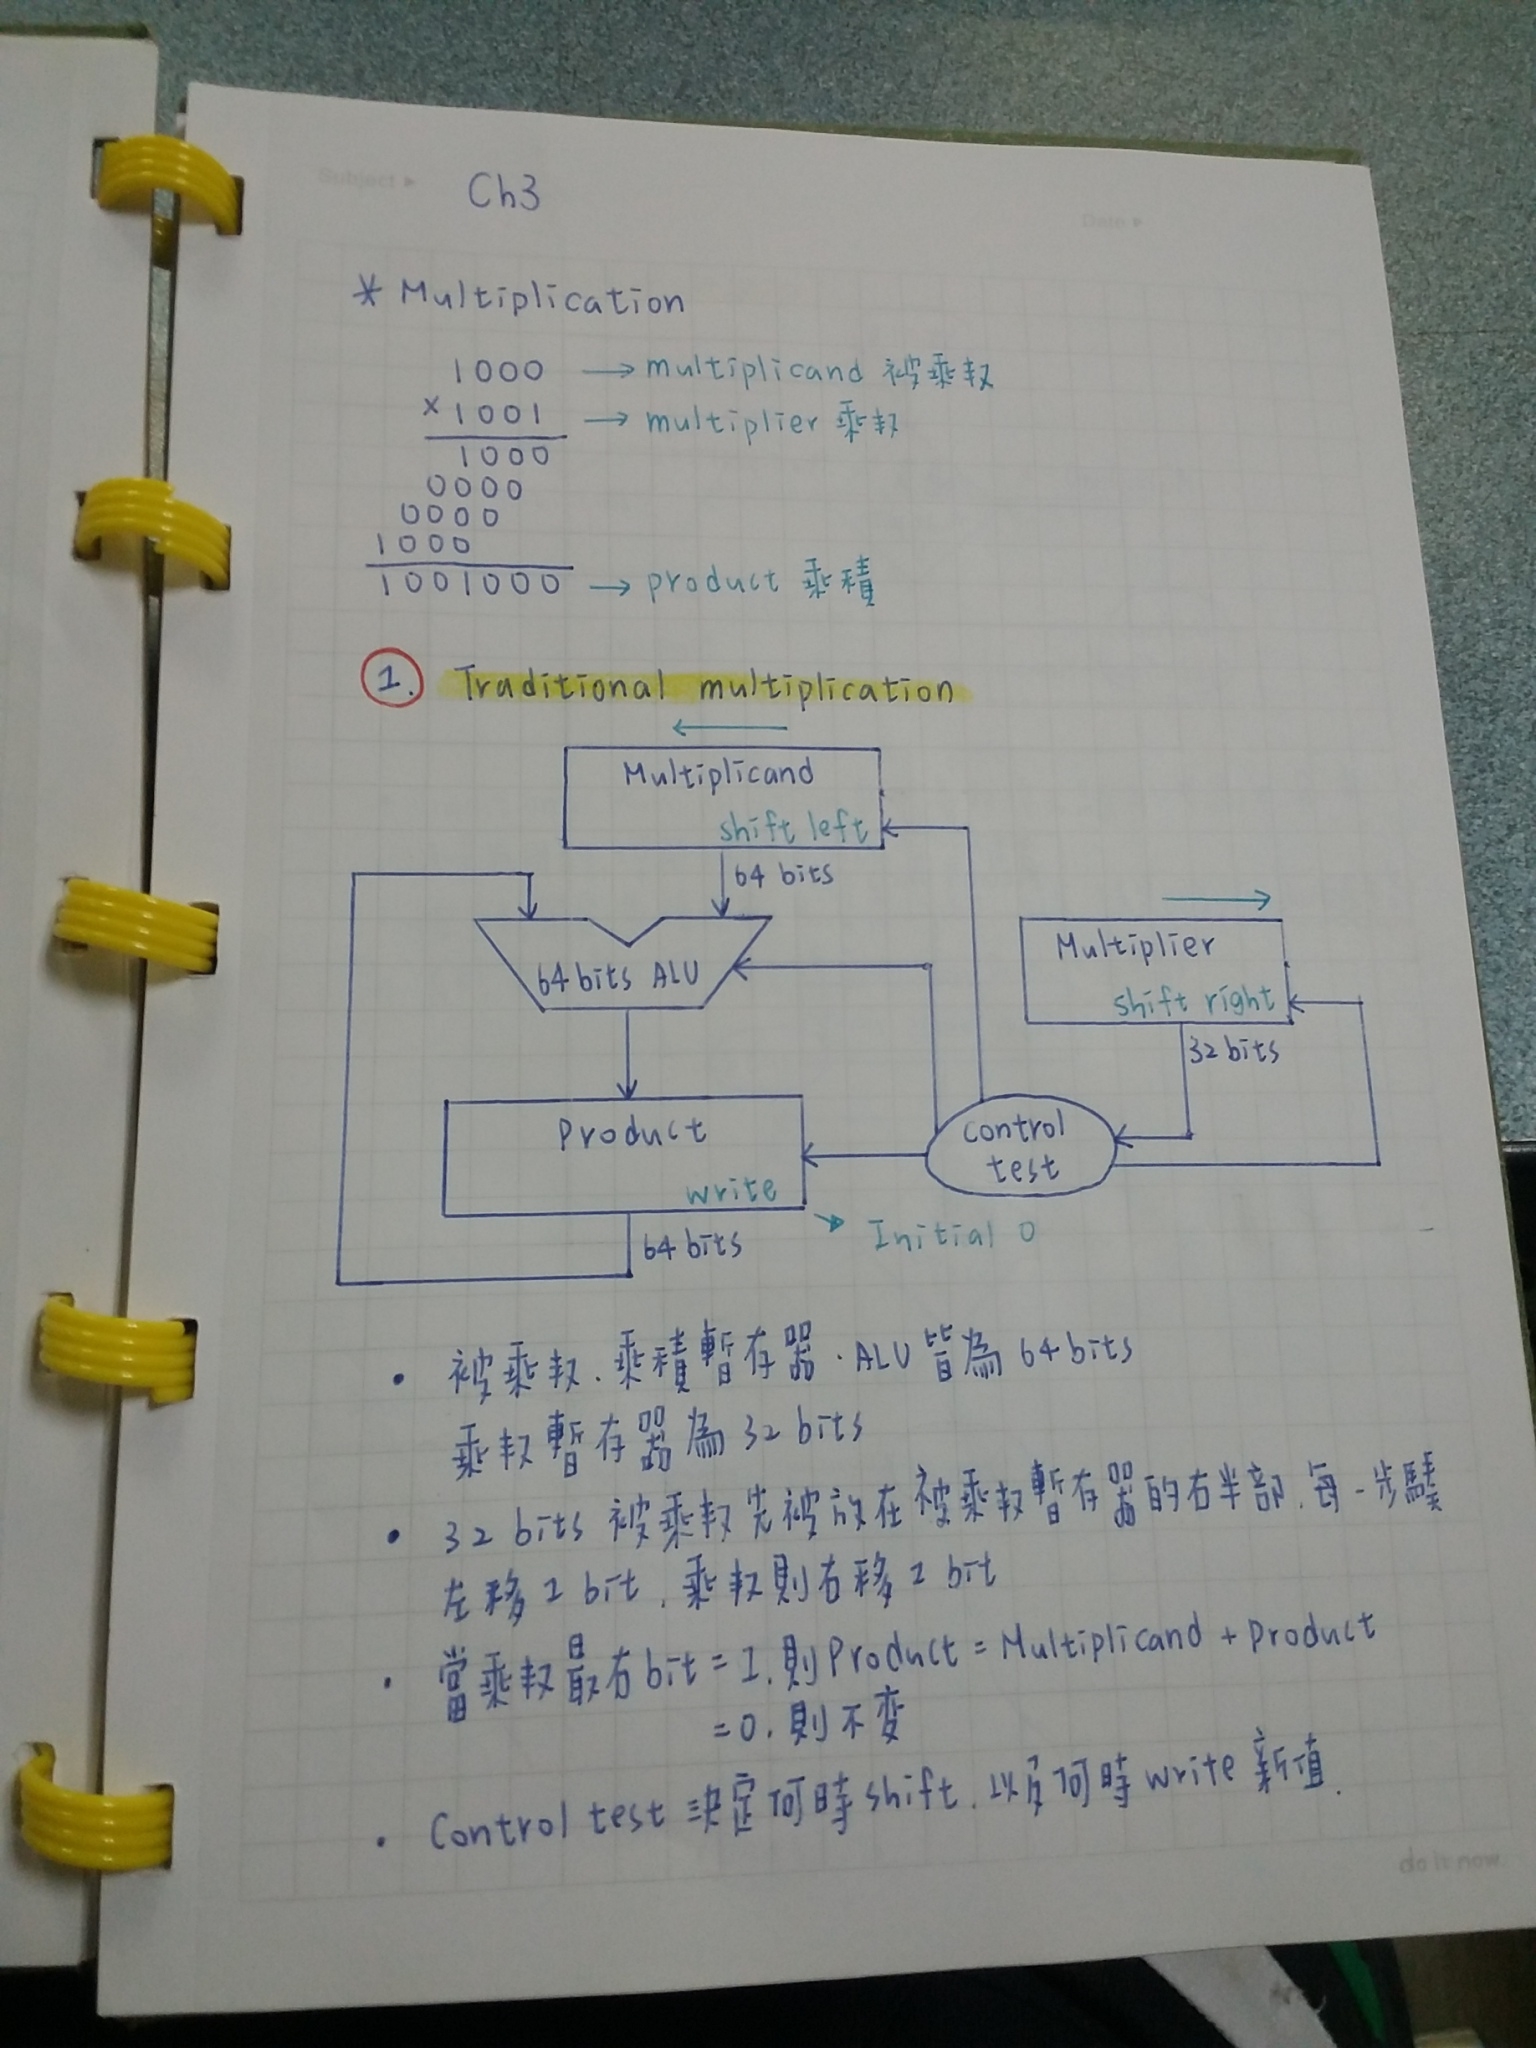 Subject ▸ Ch3
Date ▸
* Multiplication
1000 → multiplicand 被乘数
× 1001 → multiplier 乘数
1000
0000
0000
1000
1001000 → product 乘積
1. Traditional multiplication
←
Multiplicand
shift left
64 bits
→
64 bits ALU
Multiplier
shift right
32 bits
Product
write
control
test
64 bits
→ Initial 0
• 被乘数、乘積暫存器、ALU皆為 64 bits
乘数暫存器為 32 bits
• 32 bits 被乘数先被放在被乘数暫存器的右半部, 每一步驟
左移 1 bit, 乘数則右移 1 bit
• 當乘数最右 bit = 1, 則 Product = Multiplicand + Product
= 0, 則不变
• Control test 決定何時 shift, 以及何時 write 新值.
do it now.